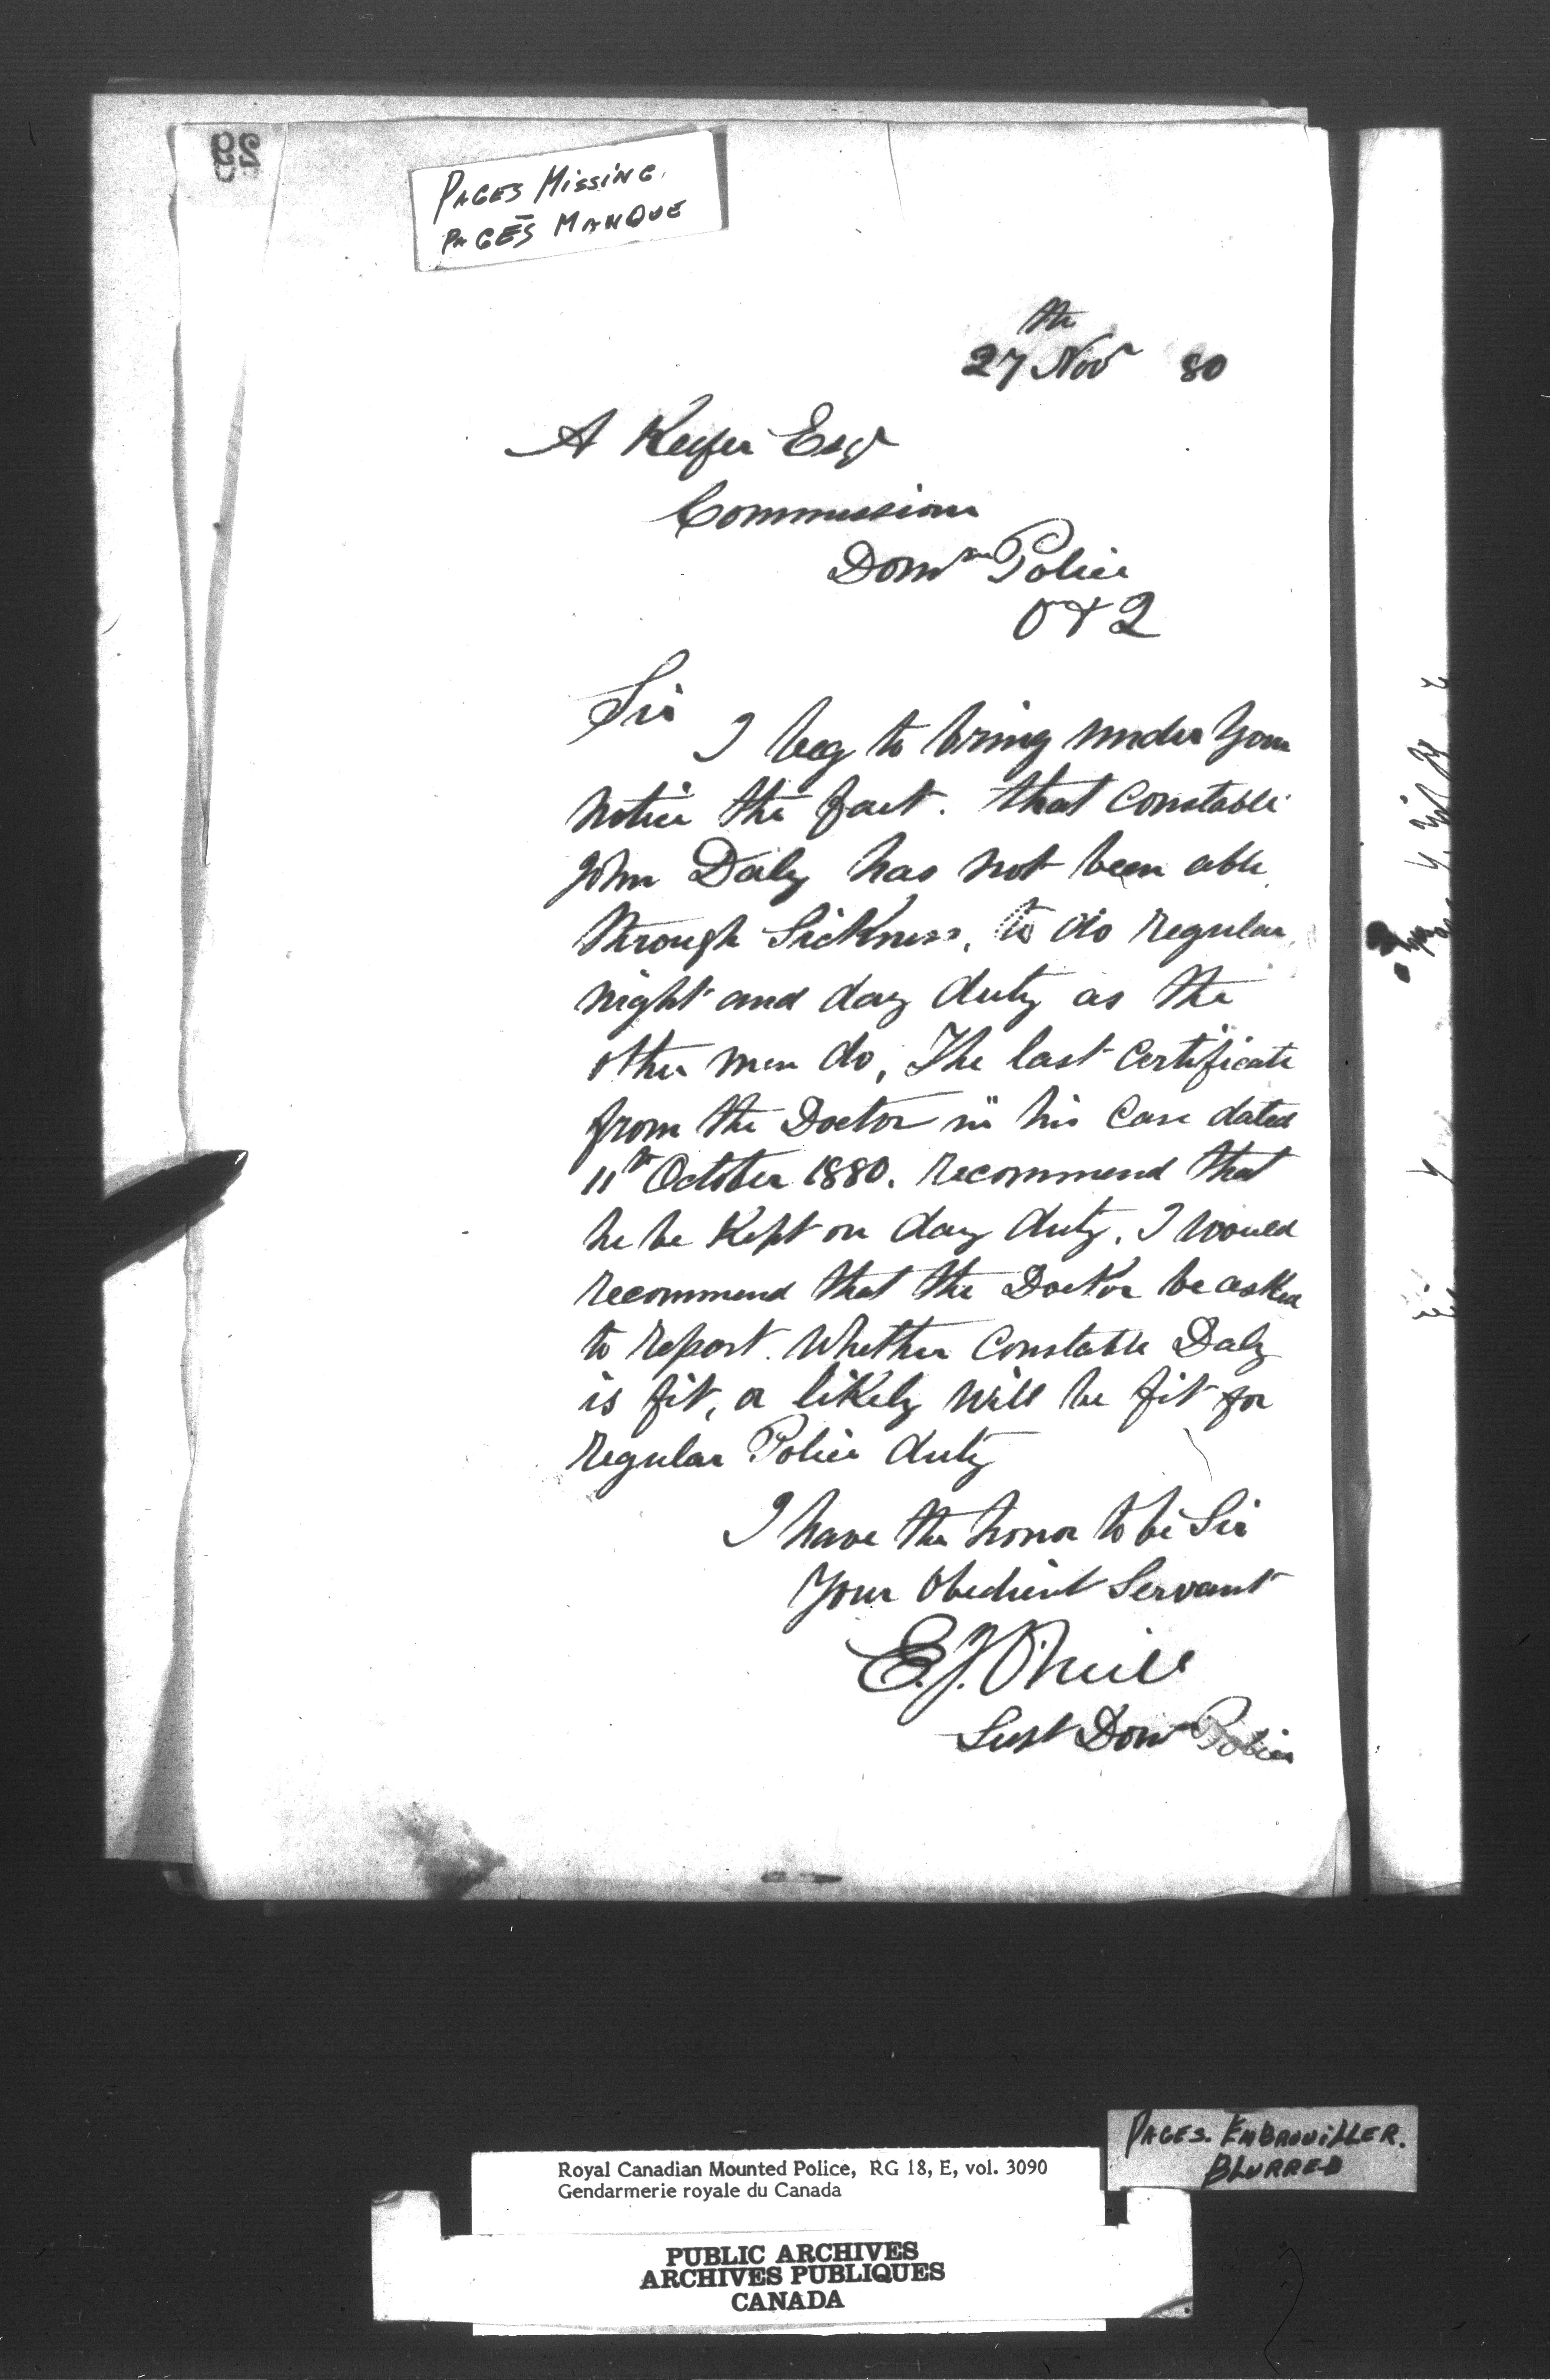 29
PAGES MISSING.
PAGES MANQUE
27th Nov 80
A Keefer Esqr
Commissioner
Domn Police
O & Q
Sir
I beg to bring under your
notice the fact. that Constable
John Daly has not been able
through Sickness, to do regular
night and day duty as the
other men do, The last Certificate
from the Doctor in his Case dated
11th October 1880. recommend that
he be Kept on day duty. I would
recommend that the Doctor be asked
to report. Whether Constable Daly
is fit, or likely will be fit for
regular Police duty
I have the honor to be Sir
Your Obedient Servant
E.J. O'Neill
Supt Domn Police
PAGES. EMBROUILLER.
BLURRED
Royal Canadian Mounted Police, RG 18, E, vol. 3090
Gendarmerie royale du Canada
PUBLIC ARCHIVES
ARCHIVES PUBLIQUES
CANADA